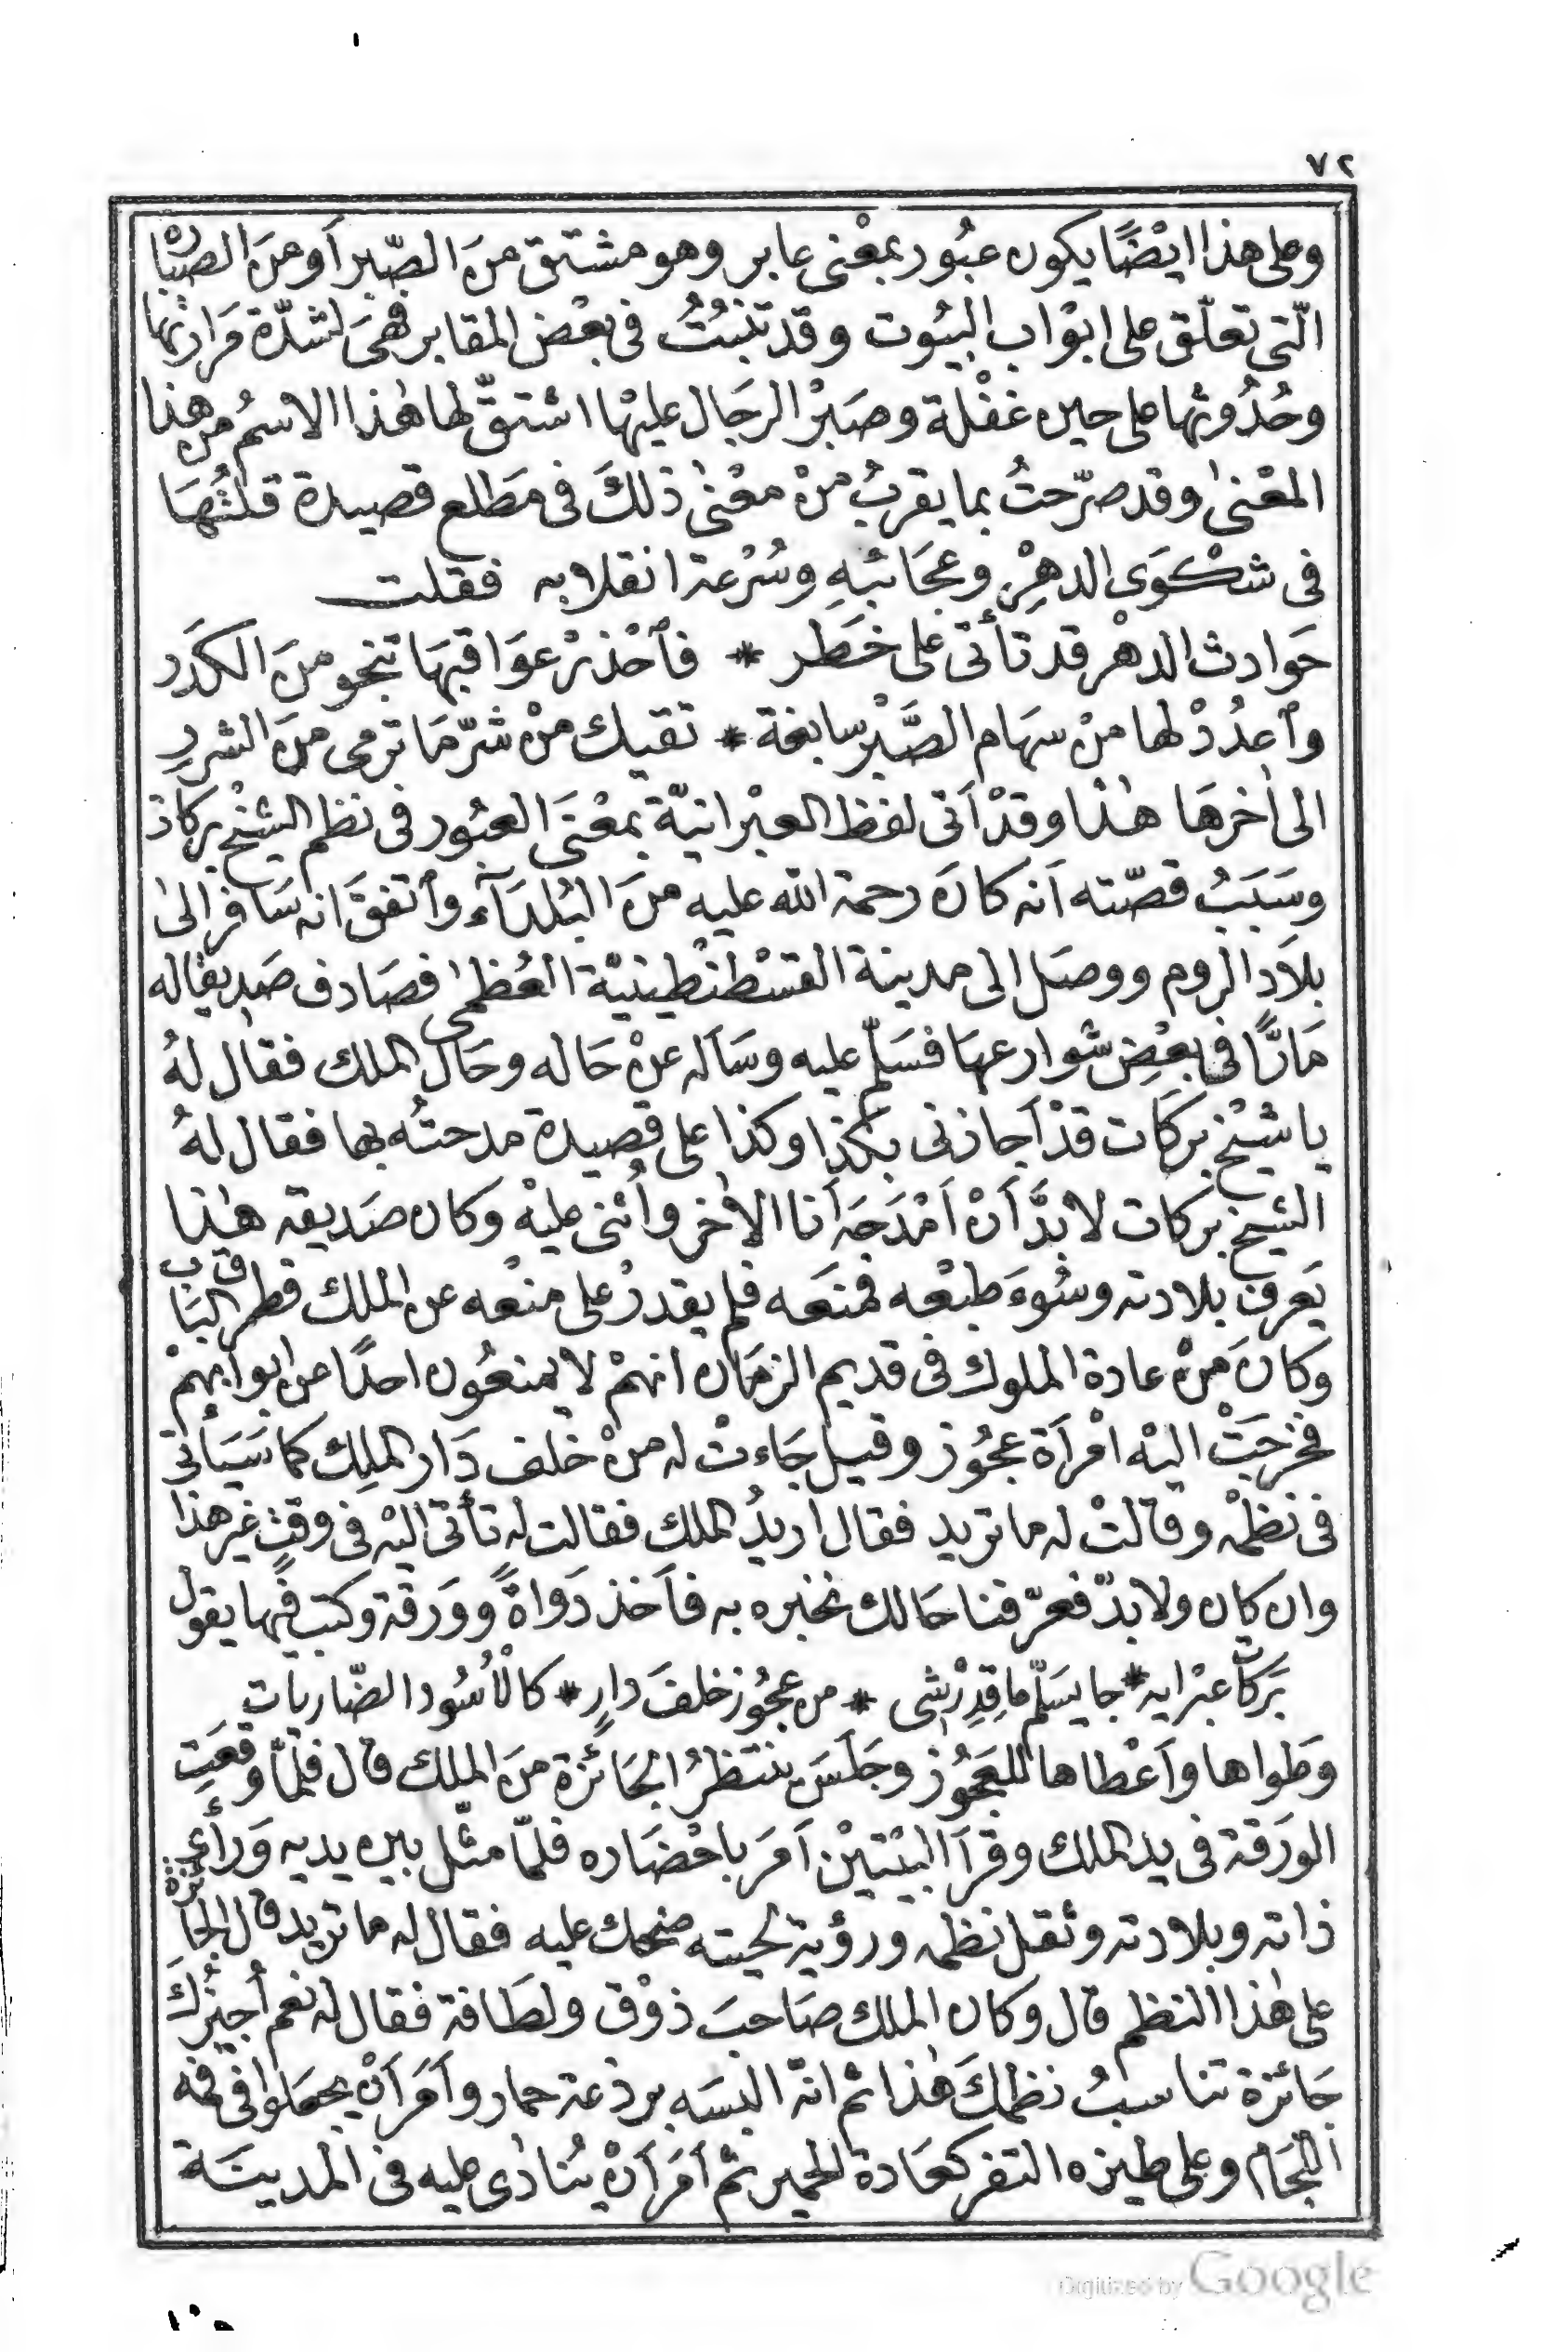 ٧٢
وعلى هذا ايْضًا يكون عبُور بمعْنى عابر وهو مشتق منَ الصّبر اَو منَ الصبّارة
الّتى تعلّق على ابوْاب البيُوت وقد تنبُتُ فى بعْض المقابر فهىَ لشدّة مَرارتها
وحُدُوثها على حين غفْلة وصَبرْ الرجَال عليهْا اشتقّ لها هٰذا الاسمُ من هذا
المعْنىٰ وقد صرّحتُ بما يقربُ منْ معْنىٰ ذٰلكَ فى مَطلع قصيدة قلتُهَا
فى شكْوَى الدهرِْ وعجَائبهِ وسُرْعة انقلابه فقلت
حَوادث الدهْر قد تأتى على خَطر * فاَحْذرْ عوَاقبهَا تنجو منَ الكدَر
واَعدُدْ لها منْ سهَام الصَّبرْ سابغة * تقيك منْ شرّ مَا ترمى منَ الشررِ
الى اٰخرهَا هٰذا وقدْ اَتى لفظ العبْرانيّة بمعْنَى العبُور فى نظم الشيْخ بركات
وسَبَبُ قصّته اَنه كانَ رحمة الله عليه منَ البُلدَآء واَتفقَ انه سَافر الىٰ
بلاَد الروم ووصَل الى مدينة القسْطنْطينيّة العُظمىٰ فصَادف صَديقا له
مَارًّا فى بعْضِ شوارعهَا فسَلّم عليه وسَاَله عنْ حَاله وحَال الملك فقال لهُ
يا شيْخ بركَات قدْ اَجازنى بكذا وكذا على قصيدة مدحتُه بها فقال لهُ
الشيخ بركات لا بدَّ اَنْ اَمْدَحَه اَنا الاٰخر واُثنى عليْه وكان صَديقه هٰذا
يَعرف بلادته وسُوءَ طبْعه فمنَعَه فلم يقدرْ على منْعه عن الملك فطرق البَاب
وكانَ منْ عادة الملوك فى قديم الزمَان انهمْ لا يمنعُون احدًا من ابوابهمْ
فخرجَتْ اليْه امْرأة عجُوز وقيل جَاءتْ له منْ خلف دَار الملِك كما سَيَأتى
فى نظمْه وقالتْ له ما تريد فقال اريدُ الملك فقالت له تأتى اليْه فى وقتٍ غير هذا
وان كان ولا بدّ فعرّفنا حَالك نخبره به فاَخذ دَواةً ووَرَقة وكتب فيها يقول
بَركاتْ عبْرايه * جا يسَلّم ما قِدِرْشى * من عجُوز خلفَ دارٍ * كالاُسُود الضّاريات
وطواها واَعْطاها للعَجُوز وجَلَسَ ينتظرُ الجَائزة منَ الملك قال فلمّا وقعَتِ
الورَقة فى يد الملك وقرَاَ البيْتيْن اَمرَ باحْضَاره فلمّا مثّل بين يديه وَرأى
ذاته وبلادته وثقل نظمه ورؤية لحيته ضحك عليه فقال له ما تريد قال الجائزة
على هٰذا النظم قال وكان الملك صَاحبَ ذوْق ولطَافة فقال له نعم اُجيزُكَ
جَائزة تناسبُ نظمكَ هٰذا ثم انّه البسَه برذعة حمار واَمَرَ اَنْ يجعَلوا فى فمه
اللّجَام وعلى طيزه التفر كعَادة الحمير ثم اَمَرَ اَنْ يُنادٰى عليه فى المدينَة
Digitized by Google